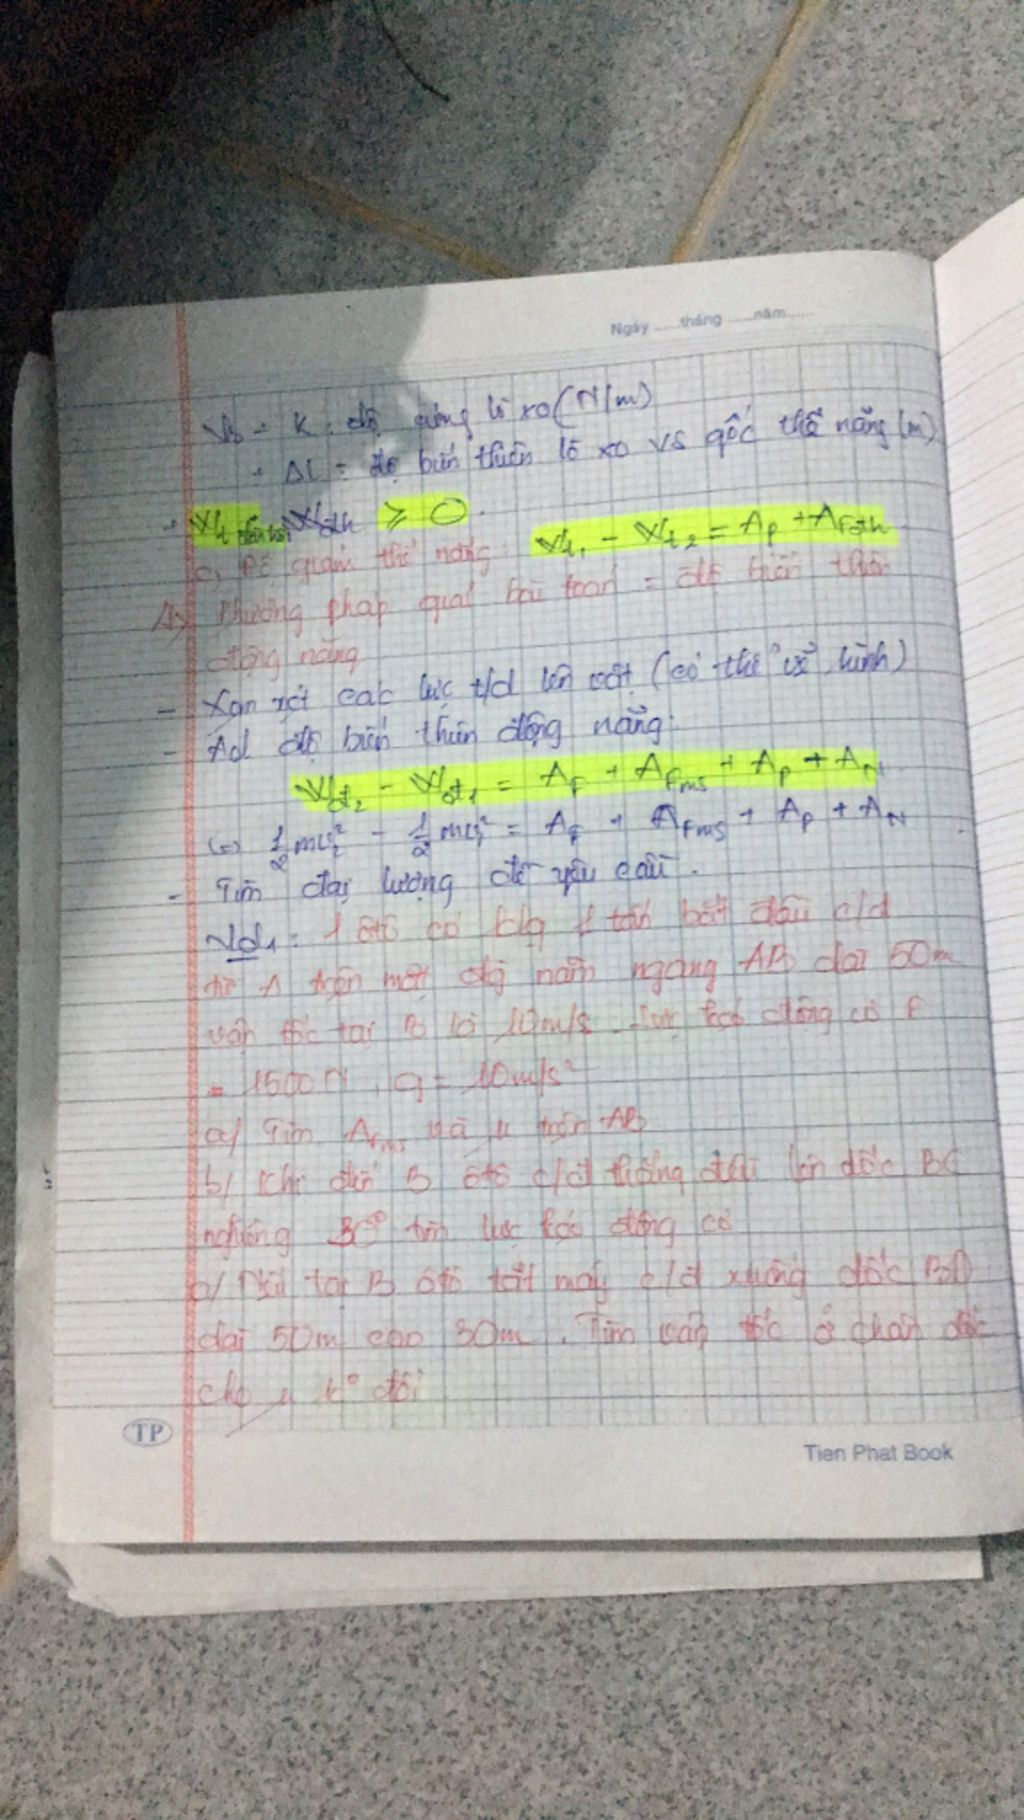 Ngày ......tháng ......năm......
K : độ cứng lò xo (N/m)
+ Δl = độ biến thiên lò xo vs gốc thế năng (m)
+ Wt đàn hồi, Wđh ≥ 0.
c, ĐL giảm thế năng : Wt1 - Wt2 = AP + AFđh
Phương pháp giải bài toán = độ biến thiên
động năng
- Xđ các lực t/d lên vật (có thể vẽ hình)
- Ad độ biến thiên động năng:
Wđ2 - Wđ1 = AF + AFms + AP + AN
(=) 1/2 mv2² - 1/2 mv1² = AF + AFms + AP + AN
- Tìm đại lượng đề yêu cầu.
Vd1 : 1 ôtô có klg 1 tấn bắt đầu c/đ
từ A trên một đg nằm ngang AB dài 50m
vận tốc tại B là 10m/s. Lực kéo động cơ F
= 1500N, g = 10m/s²
a/ Tìm AFms và μ trên AB
b/ Khi đến B ôtô c/đ thẳng đều lên dốc BC
nghiêng 30° tìm lực kéo động cơ
c/ Nếu tại B ôtô tắt máy c/đ xuống dốc BD
dài 50m cao 30m. Tìm vận tốc ở chân dốc
cho μ k° đổi
TP
Tien Phat Book